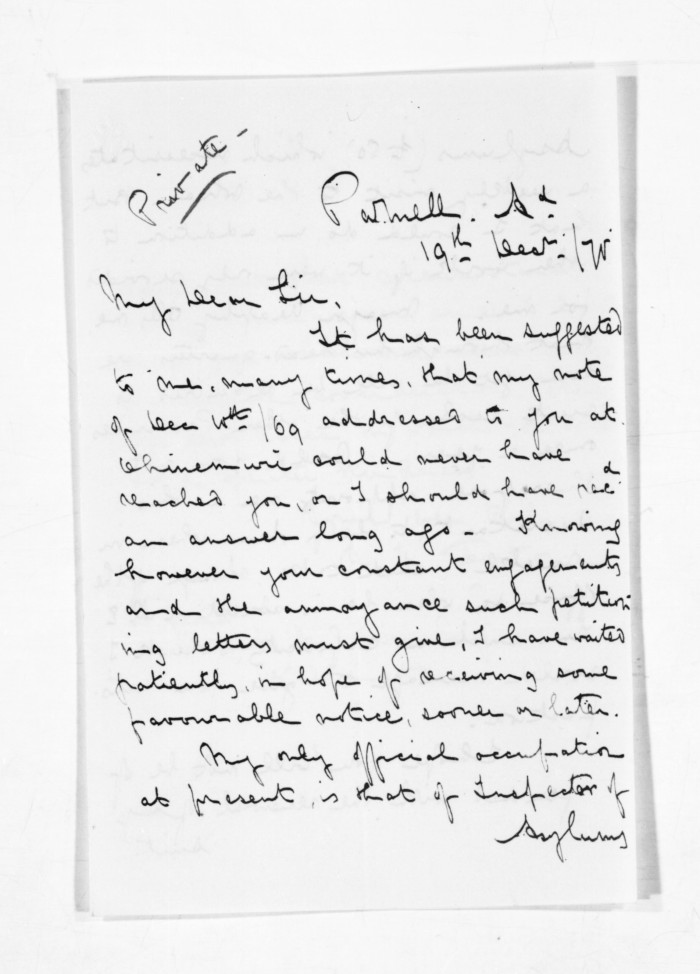 Private -
Parnell. Ad
19th Decr /70
My dear Sir,
It has been suggested
to me, many times, that my note
of Dec 10th /69 addressed to you at
Ohinemuri could never have
reached you, or I should have recd
an answer long ago - Knowing
however your constant engagements
and the annoyance such petition-
ing letters must give, I have waited
patiently, in hope of receiving some
favourable notice, sooner or later.
My only official occupation
at present, is that of Inspector of
Asylums